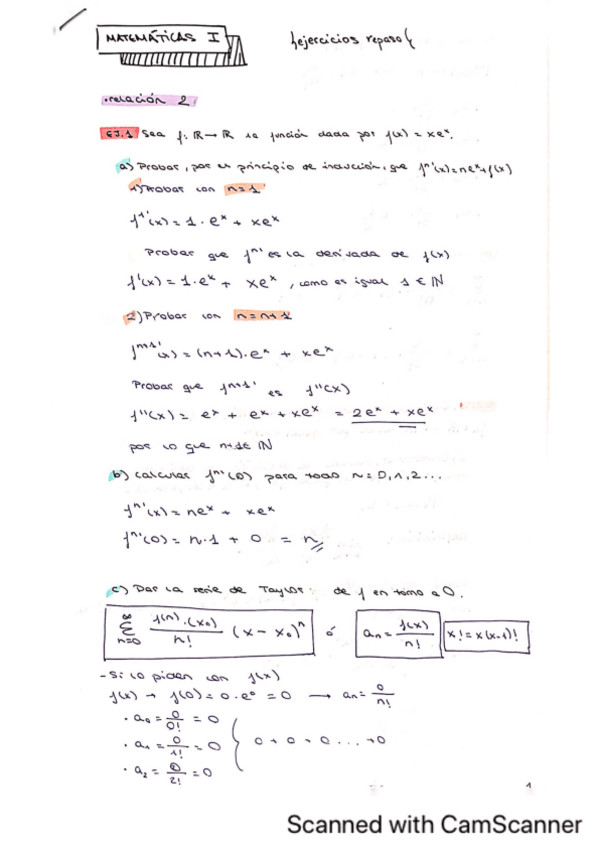 MATEMÁTICAS I
ejercicios repaso
relación 2
EJ.1 Sea f: ℝ → ℝ la función dada por f(x) = xeˣ.
a) Probar, por el principio de inducción, que fⁿ'(x) = neˣ + f(x)
1) Probar con n=1
f¹'(x) = 1 · eˣ + xeˣ
Probar que fⁿ' es la derivada de f(x)
f'(x) = 1·eˣ + xeˣ, como es igual 1 ∈ ℕ
2) Probar con n=n+1
fⁿ⁺¹'(x) = (n+1)·eˣ + xeˣ
Probar que fⁿ⁺¹' es f''(x)
f''(x) = eˣ + eˣ + xeˣ = 2eˣ + xeˣ
por lo que n+1 ∈ ℕ
b) Calcular fⁿ'(0) para todo n = 0, 1, 2...
fⁿ'(x) = neˣ + xeˣ
fⁿ'(0) = n·1 + 0 = n
c) Dar la serie de Taylor de f en torno a 0.
∑ n=0 ∞ f(n)·(x₀)/n! (x - x₀)ⁿ ó aₙ = f(x)/n! x! = x(x-1)!
- Si lo piden con f(x)
f(x) → f(0) = 0·e⁰ = 0 → aₙ = 0/n!
· a₀ = 0/0! = 0
· a₁ = 0/1! = 0 } 0 + 0 + 0 .... +0
· a₂ = 0/2! = 0
1
Scanned with CamScanner